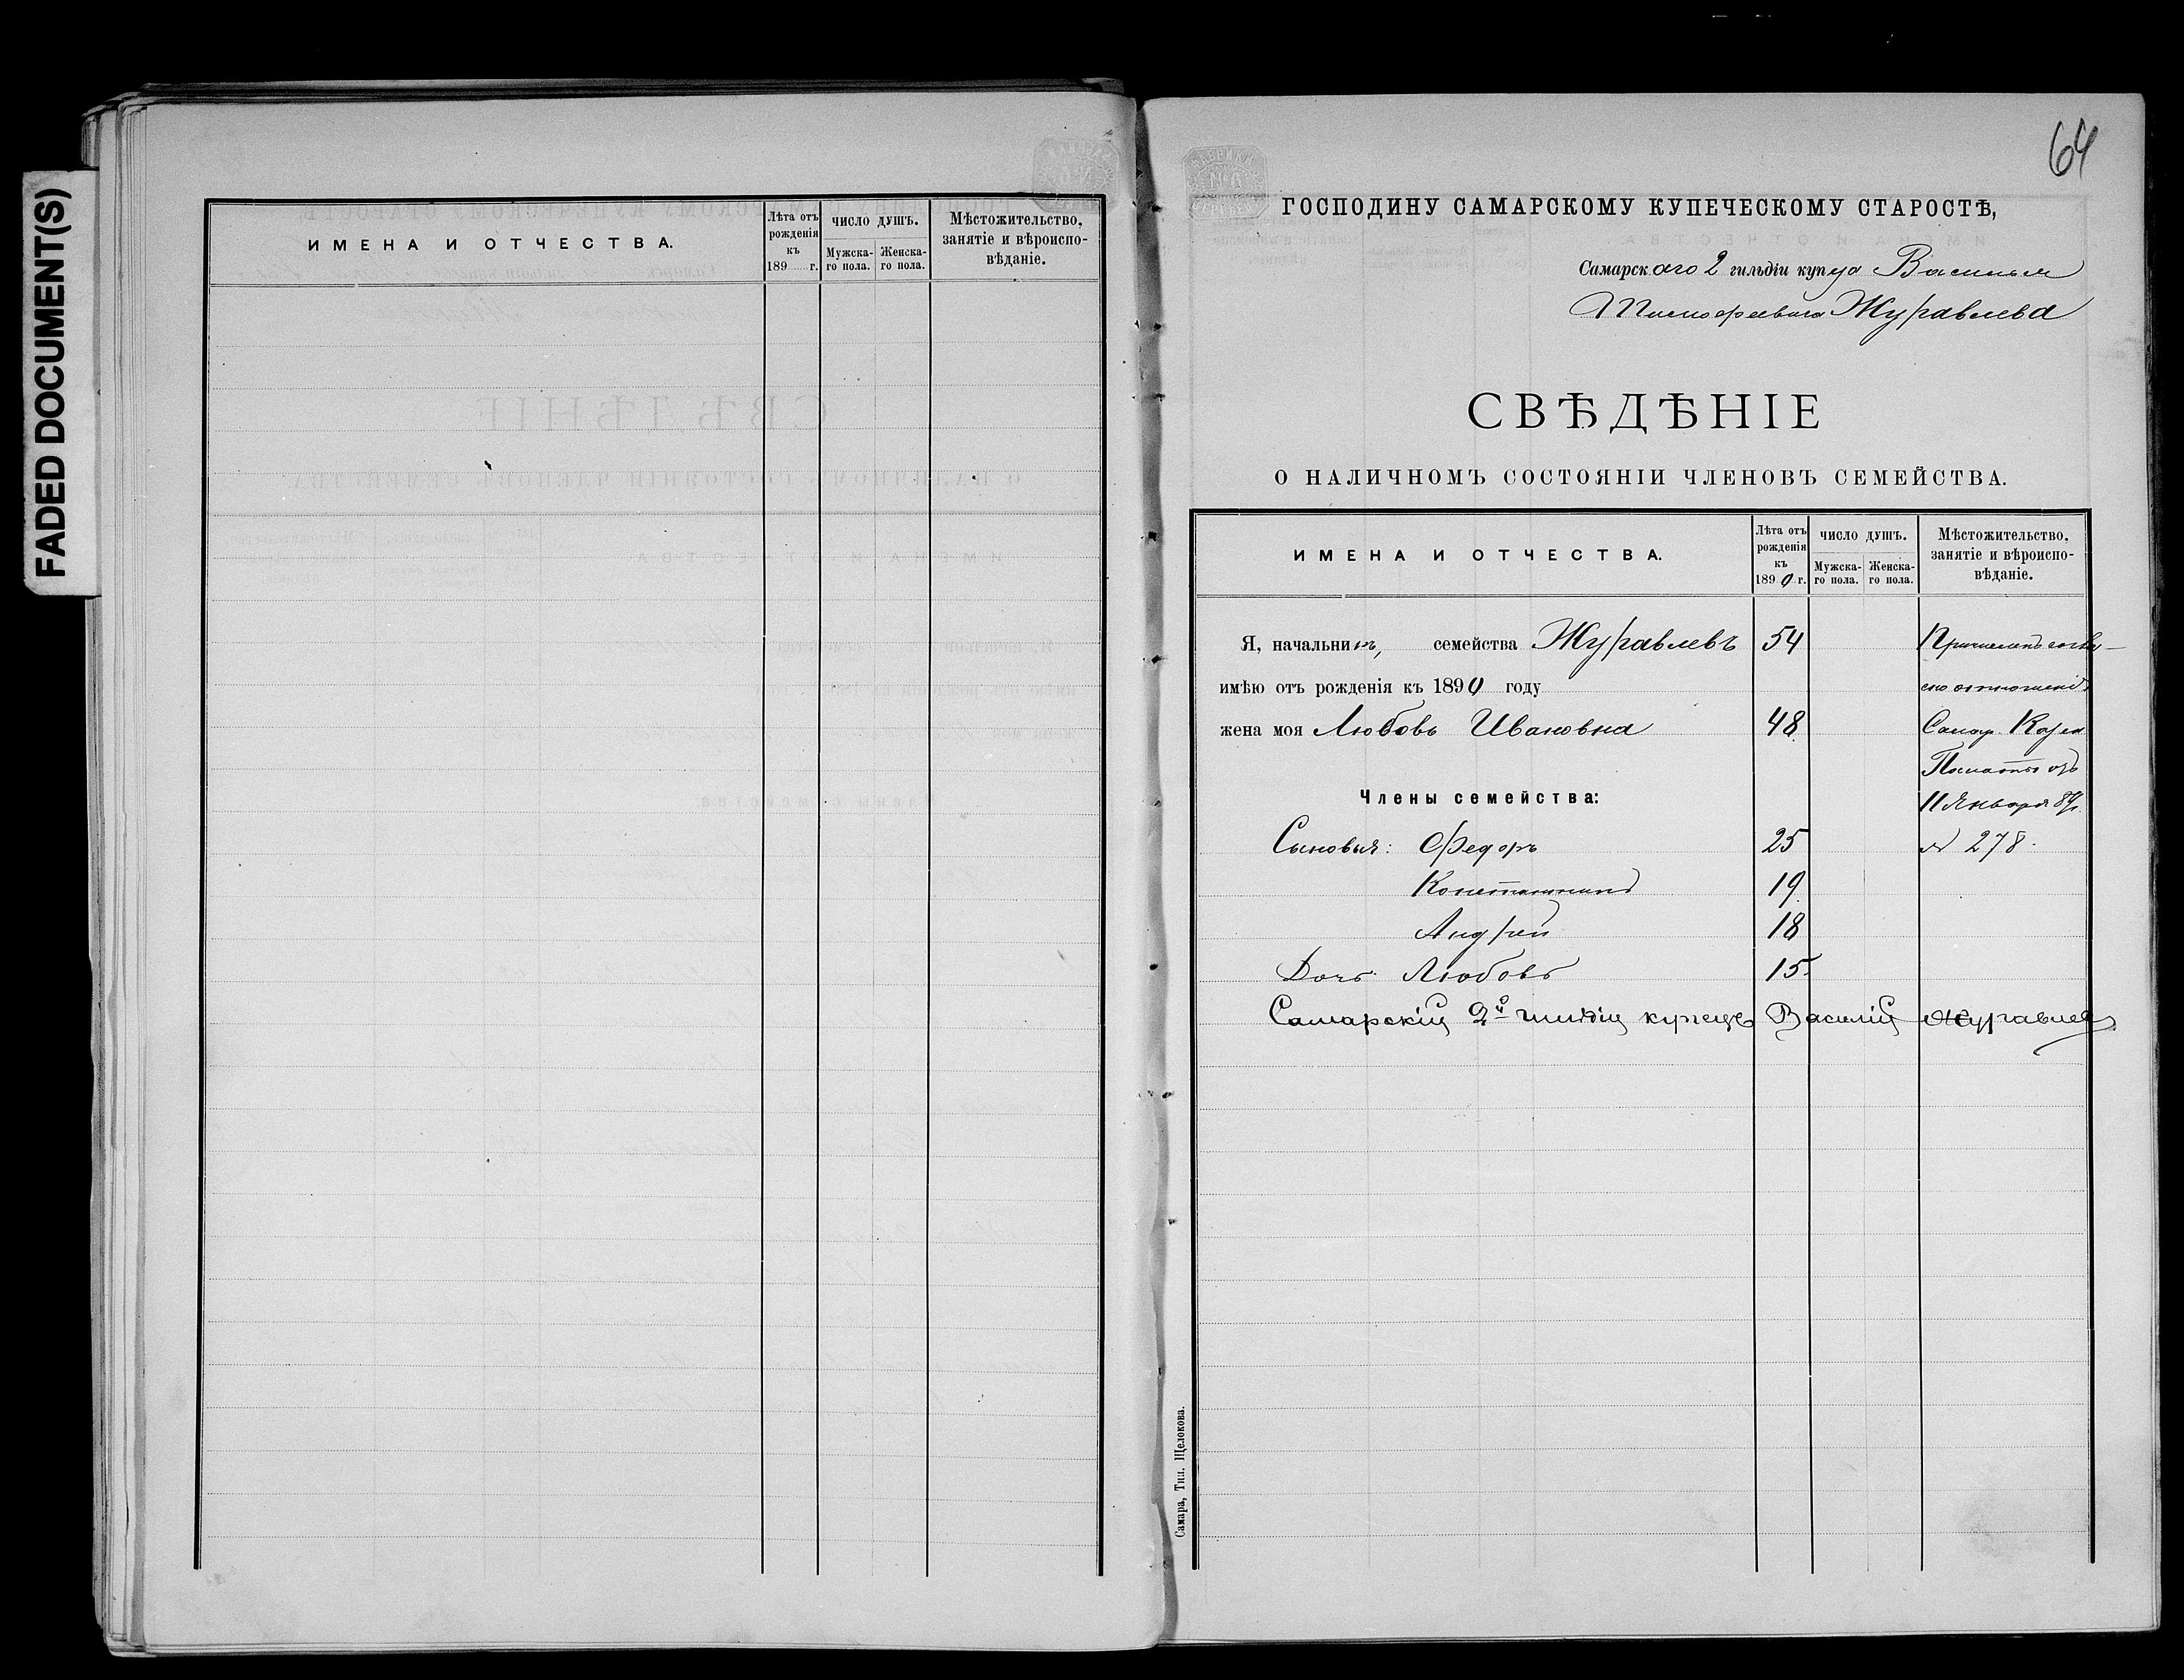 FADED DOCUMENT(S)
ИМЕНА И ОТЧЕСТВА.
Лѣта отъ рожденія къ 189 г.
ЧИСЛО ДУШЪ.
Мужска-го пола.
Женска-го пола.
Мѣстожительство, занятіе и вѣроиспо-вѣданіе.
64
ГОСПОДИНУ САМАРСКОМУ КУПЕЧЕСКОМУ СТАРОСТѢ,
Самарскаго 2 гильдіи купца Василья
Тимофеевича Журавлева
СВѢДѢНІЕ
О НАЛИЧНОМЪ СОСТОЯНІИ ЧЛЕНОВЪ СЕМЕЙСТВА.
ИМЕНА И ОТЧЕСТВА.
Лѣта отъ рожденія къ 1890 г.
ЧИСЛО ДУШЪ.
Мужска-го пола.
Женска-го пола.
Мѣстожительство, занятіе и вѣроиспо-вѣданіе.
Я, начальникъ, семейства Журавлевъ 54 Причисленъ
имѣю отъ рожденія къ 1890 году отношенію
жена моя Любовь Ивановна 48 Самар. Казен.
Палаты отъ
Члены семейства: 11 Января
Сыновья: Федоръ 25 № 278.
Константинъ 19
Андрей 18
Дочь Любовь 15
Самарскій 2й гильдіи купецъ Василій Журавлев
Самара, Тип. Щелокова.